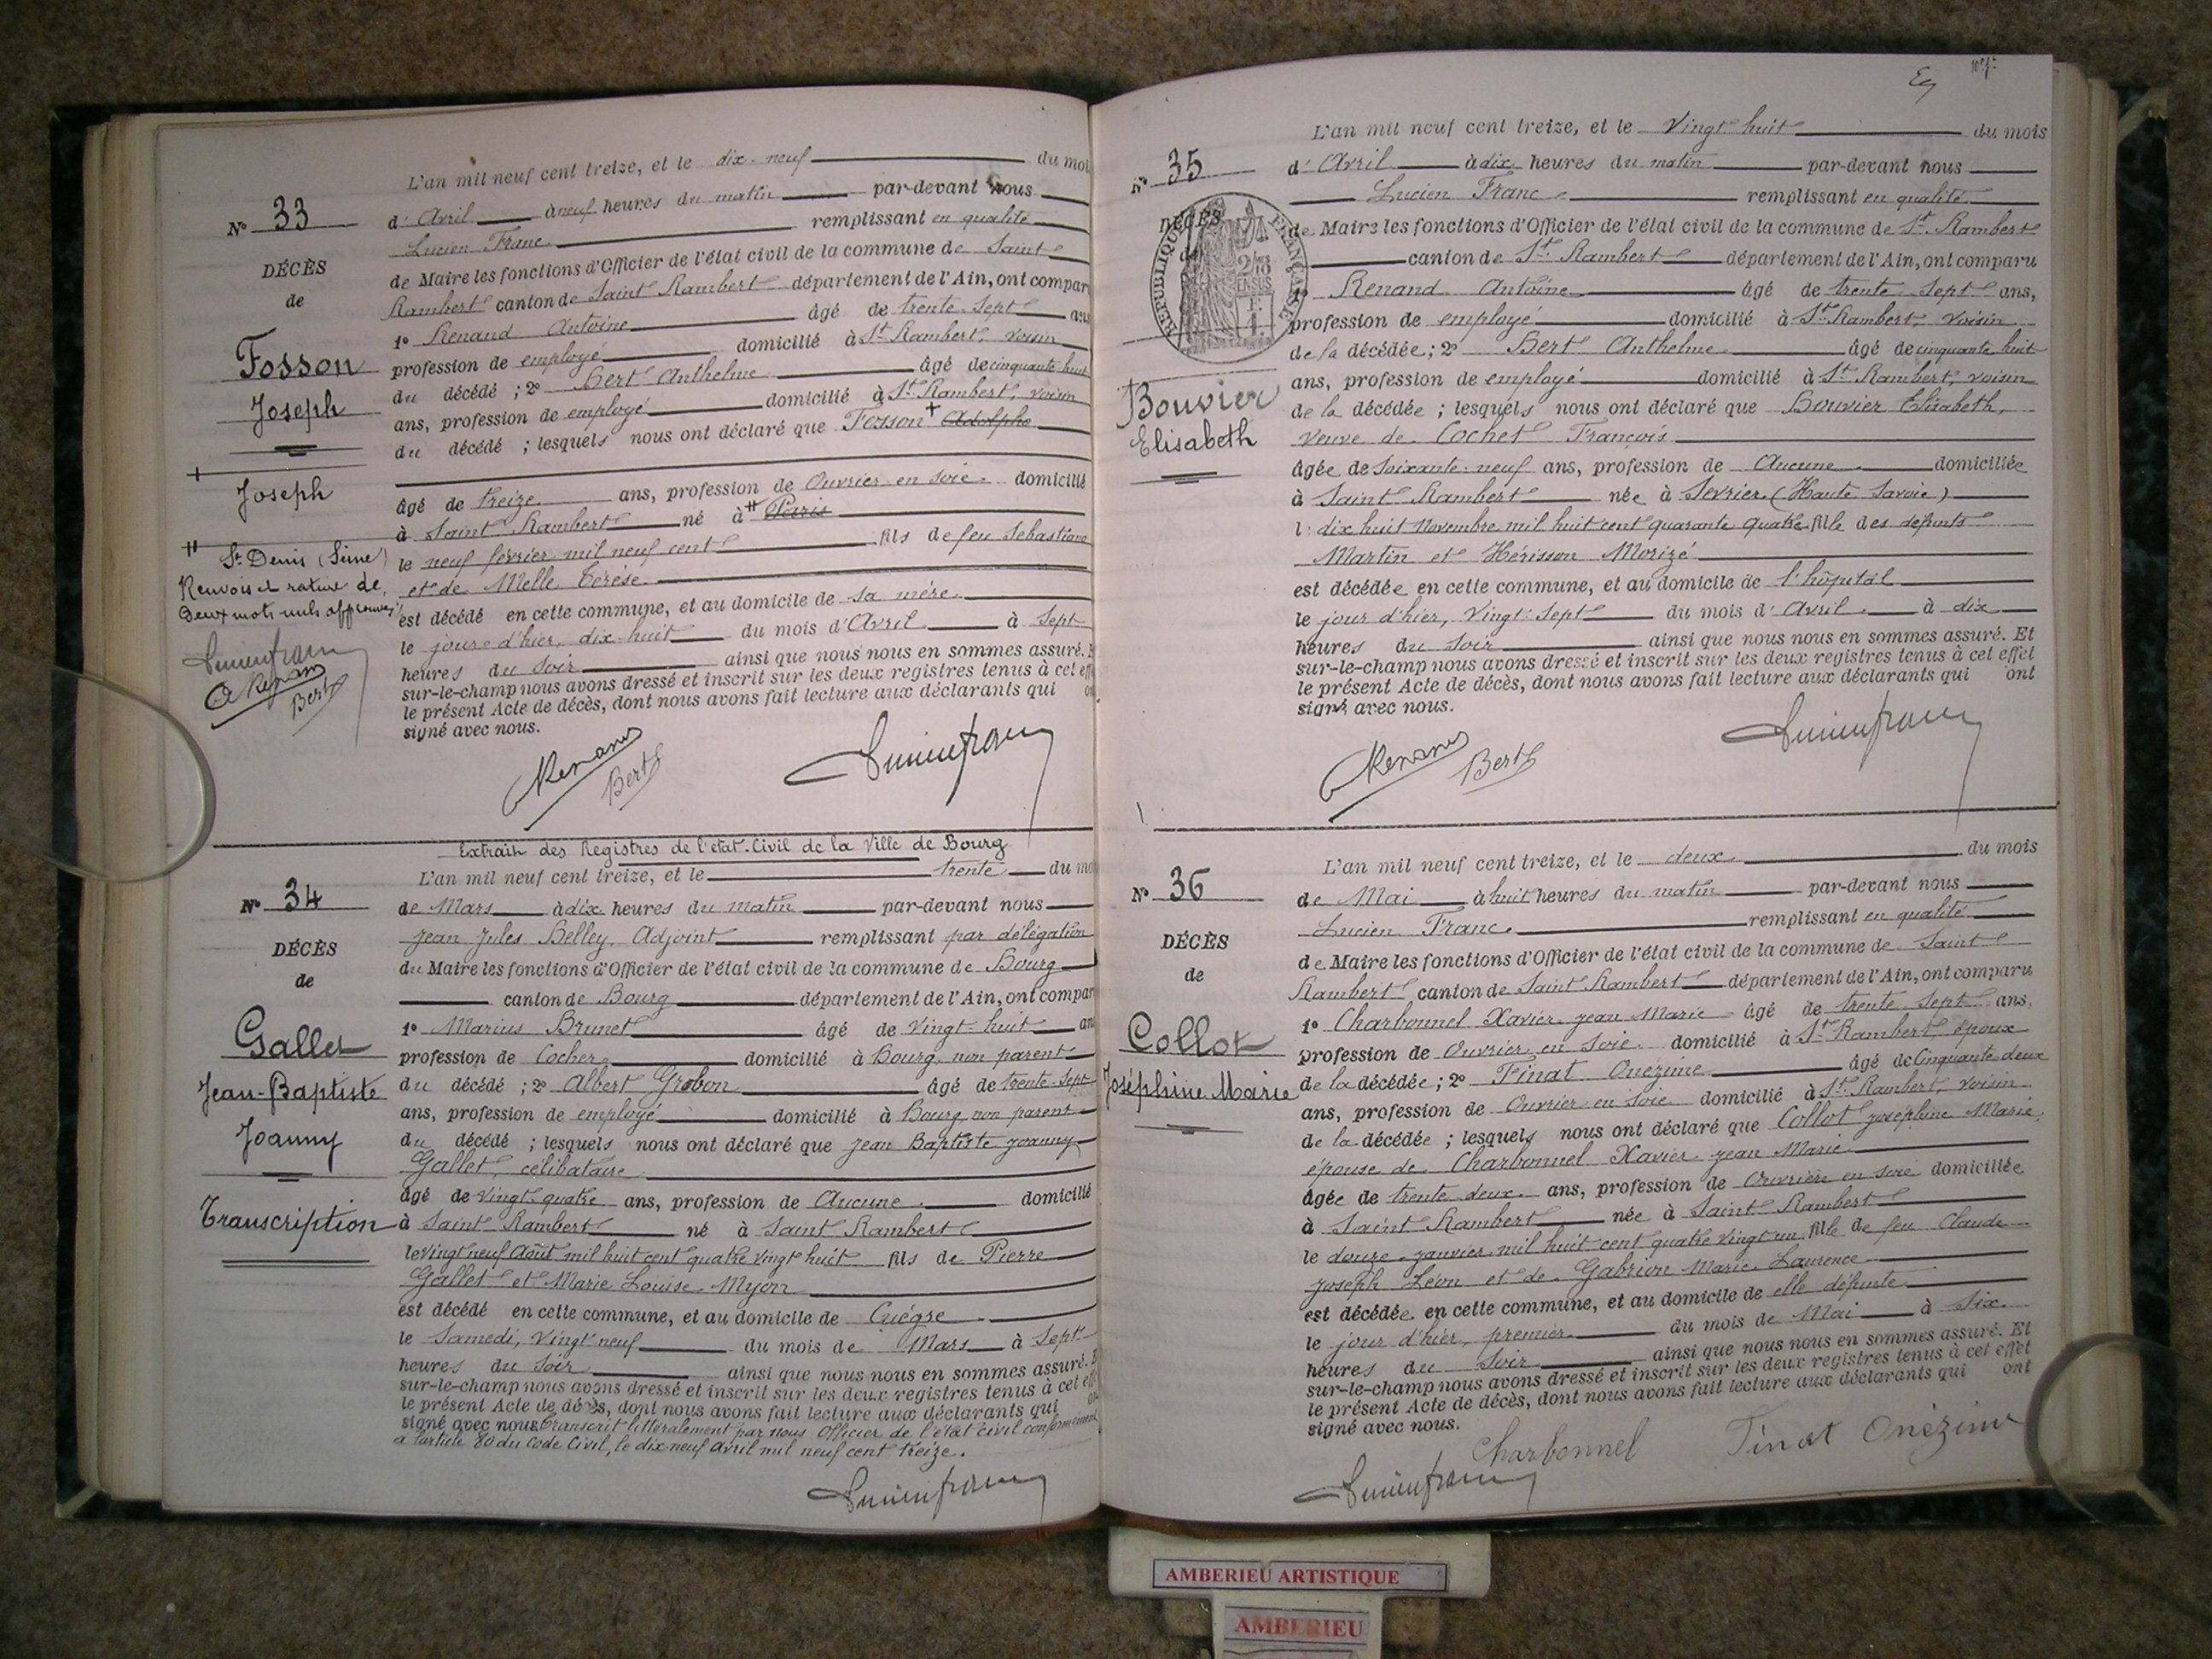 L'an mil neuf cent treize, et le dix-neuf du moi
N° 33
d'Avril à neuf heures du matin par-devant nous
Lucien Franc remplissant en qualité
DÉCÈS
de Maire les fonctions d'Officier de l'état civil de la commune de Saint
de
Rambert canton de Saint Rambert département de l'Ain, ont compar
1° Renand Antoine âgé de trente-sept ans
Fosson
profession de employé domicilié à St Rambert, voisin
Joseph
du décédé ; 2° Bert Anthelme âgé de cinquante-huit
ans, profession de employé domicilié à St Rambert, voisin
du décédé ; lesquels nous ont déclaré que Fosson + Adolphe
+ Joseph
âgé de treize ans, profession de Ouvrier en soie domicilié
à Saint Rambert né à # Paris
# St Denis (Seine)
le neuf février mil neuf cent fils de feu Sebastiano
Renvois et rature de
et de Melle Térèse
deux mots nuls approuvés
est décédé en cette commune, et au domicile de sa mère
le jour d'hier, dix-huit du mois d'Avril à sept
Lucien Franc
heures du soir ainsi que nous nous en sommes assuré. E
Renand
Bert
sur-le-champ nous avons dressé et inscrit sur les deux registres tenus à cet eff
le présent Acte de décès, dont nous avons fait lecture aux déclarants qui on
signé avec nous.
Renand Bert Lucien Franc
Extrait des Registres de l'état-Civil de la Ville de Bourg
L'an mil neuf cent treize, et le trente du mo
N° 34
de Mars à dix heures du matin par-devant nous
Jean Jules Belley, Adjoint remplissant par délégation
DÉCÈS
du Maire les fonctions d'Officier de l'état civil de la commune de Bourg
de
canton de Bourg département de l'Ain, ont compar
1° Marius Brunet âgé de vingt-huit an
Gallet
profession de Cocher domicilié à Bourg, non parent
Jean-Baptiste
du décédé ; 2° Albert Grobon âgé de trente-sept
ans, profession de employé domicilié à Bourg, non parent
Joanny
du décédé ; lesquels nous ont déclaré que Jean Baptiste Joanny
Gallet, célibataire
âgé de vingt-quatre ans, profession de Aucune domicilié
Transcription
à Saint Rambert né à Saint Rambert
le vingt neuf Août mil huit cent quatre vingt huit fils de Pierre
Gallet et Marie Louise Myon
est décédé en cette commune, et au domicile de
le Samedi, vingt neuf du mois de Mars à sept
heures du soir ainsi que nous nous en sommes assuré. E
sur-le-champ nous avons dressé et inscrit sur les deux registres tenus à cet eff
le présent Acte de décès, dont nous avons fait lecture aux déclarants qui on
signé avec nous Transcrit littéralement par nous Officier de l'état civil conformément
à l'article 80 du Code Civil, le dix-neuf avril mil neuf cent treize.
Lucien Franc
L'an mil neuf cent treize, et le vingt huit du mois
N° 35
d'Avril à dix heures du matin par-devant nous
Lucien Franc remplissant en qualité
DÉCÈS
de
RÉPUBLIQUE FRANÇAISE
2/10 EN SUS
de Maire les fonctions d'Officier de l'état civil de la commune de St Rambert
canton de St Rambert département de l'Ain, ont comparu
1° Renand Antoine âgé de trente-sept ans,
profession de employé domicilié à St Rambert, voisin
de la décédée ; 2° Bert Anthelme âgé de cinquante huit
Bouvier
ans, profession de employé domicilié à St Rambert, voisin
de la décédée ; lesquels nous ont déclaré que Bouvier Elisabeth,
Elisabeth
veuve de Cochet François
âgée de soixante-neuf ans, profession de Aucune domiciliée
à Saint Rambert née à Sevrier (Haute Savoie)
le dix huit Novembre mil huit cent quarante quatre fille des défunts
Martin et Hérisson Morizé
est décédée en cette commune, et au domicile de l'hôpital
le jour d'hier, vingt-sept du mois d'Avril à dix
heures du soir ainsi que nous nous en sommes assuré. Et
sur-le-champ nous avons dressé et inscrit sur les deux registres tenus à cet effet
le présent Acte de décès, dont nous avons fait lecture aux déclarants qui ont
signé avec nous.
Renand Bert Lucien Franc
L'an mil neuf cent treize, et le deux du mois
N° 36
de Mai à huit heures du matin par-devant nous
Lucien Franc remplissant en qualité
DÉCÈS
de Maire les fonctions d'Officier de l'état civil de la commune de Saint
de
Rambert canton de Saint Rambert département de l'Ain, ont comparu
1° Charbonnel Xavier Jean Marie âgé de trente-sept ans,
Collot
profession de Ouvrier en soie domicilié à St Rambert, époux
Joséphine Marie
de la décédée ; 2° Tinat Onézime âgé de Cinquante deux
ans, profession de Ouvrier en soie domicilié à St Rambert, voisin
de la décédée ; lesquels nous ont déclaré que Collot Joséphine Marie,
épouse de Charbonnel Xavier Jean Marie
âgée de trente-deux ans, profession de Ouvrière en soie domiciliée
à Saint Rambert née à Saint Rambert
le douze Janvier mil huit cent quatre vingt un fille de feu Claude
Joseph Léon et de Gabrion Marie Laurence
est décédée en cette commune, et au domicile de elle défunte
le jour d'hier, premier du mois de Mai à six
heures du soir ainsi que nous nous en sommes assuré. Et
sur-le-champ nous avons dressé et inscrit sur les deux registres tenus à cet effet
le présent Acte de décès, dont nous avons fait lecture aux déclarants qui ont
signé avec nous.
Charbonnel Tinat Onézime
Lucien Franc
AMBERIEU ARTISTIQUE
AMBERIEU